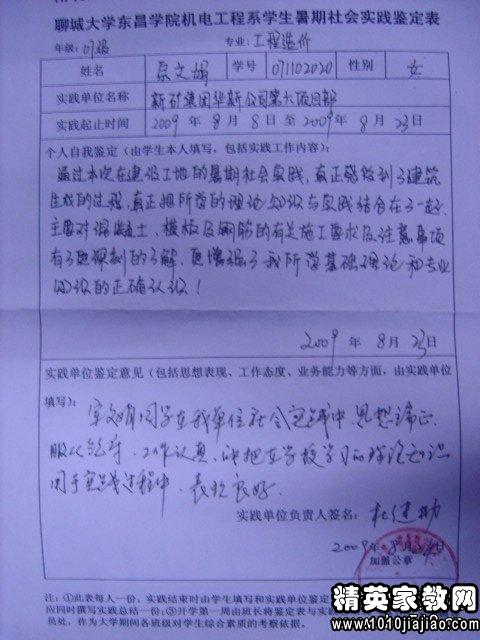 聊城大学东昌学院机电工程系学生暑期社会实践鉴定表
年级：07级 专业：工程造价
姓名 学号 071102020 性别 女
实践单位名称 新矿集团华新公司第六项目部
实践起止时间 2009 年 8 月 8 日 至 2009 年 8 月 23 日
个人自我鉴定（由学生本人填写，包括实践工作内容）：
通过本次在建设工地的暑期社会实践，真正感做到了建筑
生成的过程，真正把所学的理论知识与实践结合在了一起，
主要对混凝土、模板及钢筋的有关施工要求及注意事项
有了更深刻的了解，更增强了我所学基础理论和专业
知识的正确认识！
2009 年 8 月 23 日
实践单位鉴定意见（包括思想表现、工作态度、业务能力等方面，由实践单位
填写）：
同学在我单位社会实践中，思想端正
服从领导，工作认真，能把在学校学习的理论知识
用于实践过程中，表现良好。
实践单位负责人签名：
2009 年 8 月 日
加盖公章
注：①此表每人一份，实践结束时由学生填写和实践单位鉴定
应同时撰写实践总结一份；③开学第一周由班长将鉴定表与实践
员处，作为大学期间各班级对学生综合素质的考察依据。
精英家教网
www.1010jiajiao.com